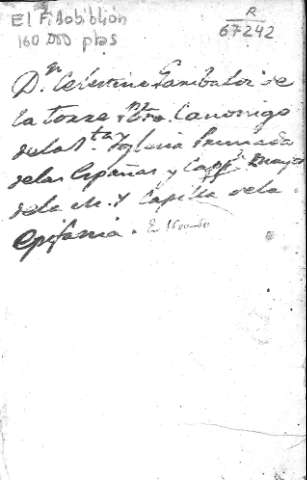 El Filobiblión
160.000 ptas
R
67242
Dn Celestino Garibaldi de
la Torre Pbro. Canonigo
de la Sta Yglesia Primada
de las Españas y Capn Mayor
de la M. Y Capilla de la
Epifania.